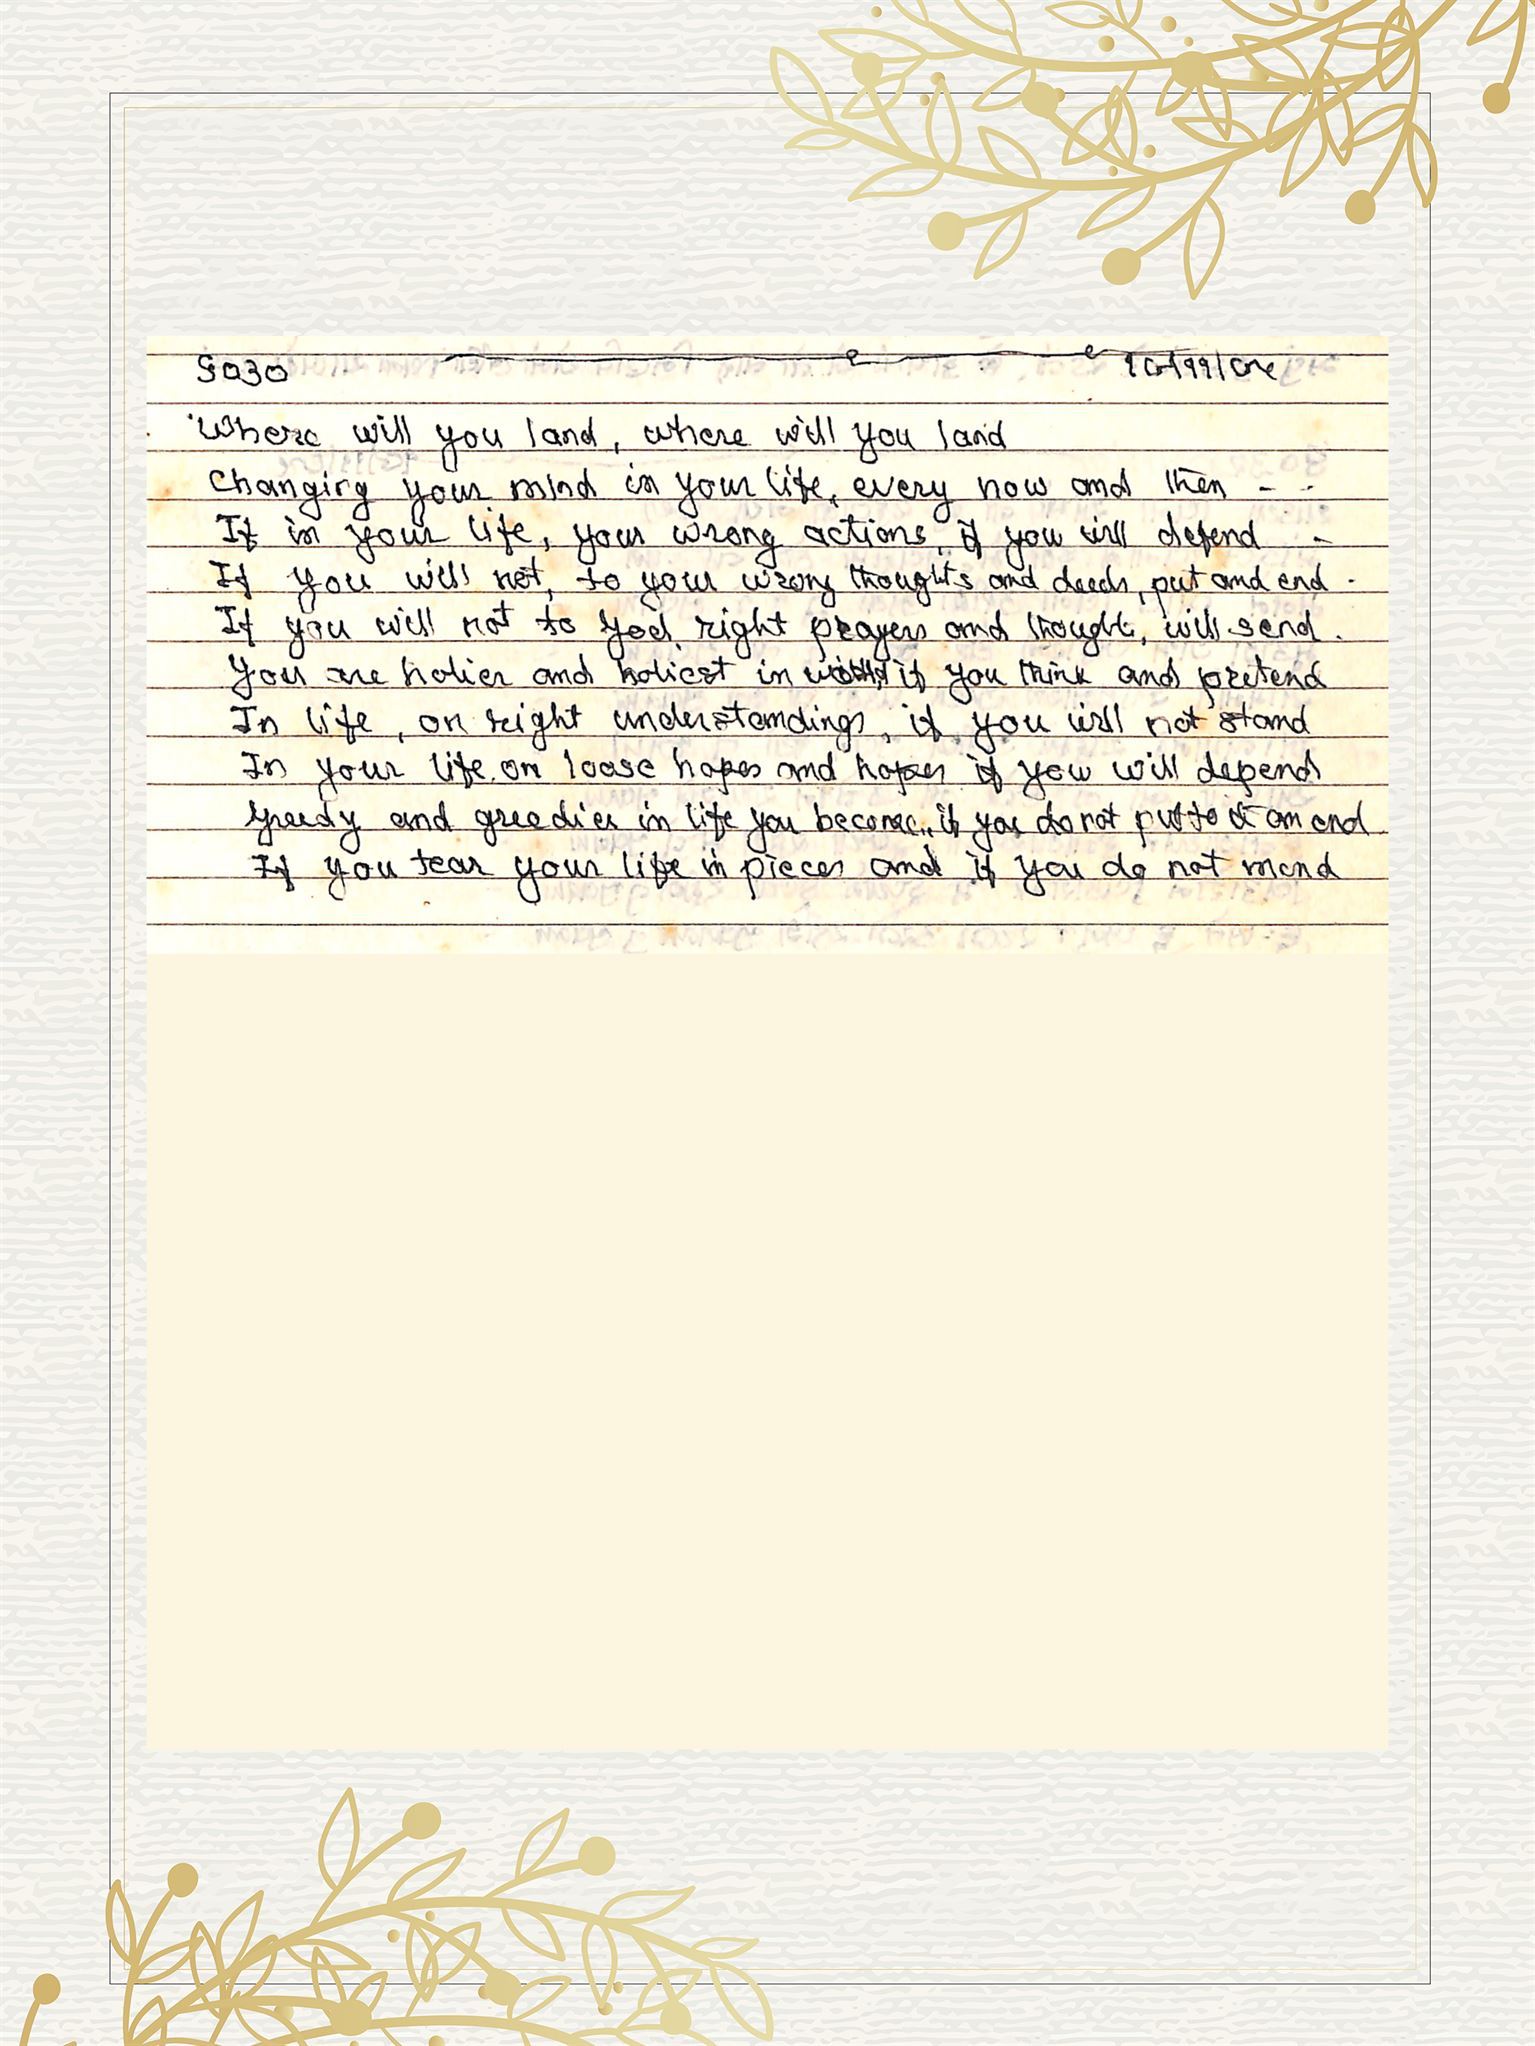 9030
Where will you land, where will you land
Changing your mind in your life, every now and then - -
If in your life, your wrong actions, if you will defend -
If you will not, to your wrong thoughts and deeds, put and end.
If you will not to God, right prayers and thoughts, will send.
You are holier and holiest in world, if you think and pretend
In life, on right understandings, if you will not stand
In your life, on loose hopes and hopes if you will depend
Greedy and greedier in life you become, if you do not put to it an end
If you tear your life in pieces and if you do not mend